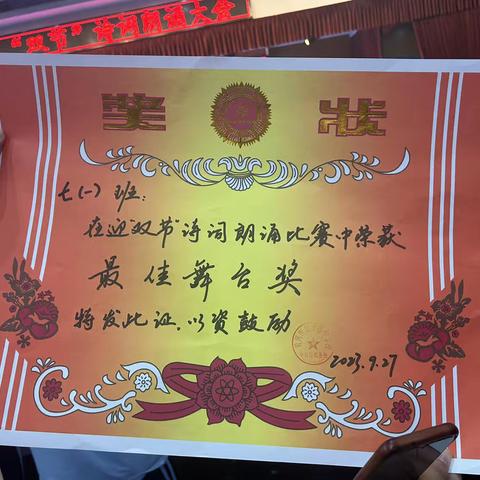 "双节"诗词朗诵大会
奖 状
七(一)班:
在迎"双节"诗词朗诵比赛中荣获
最佳舞台奖
特发此证.以资鼓励
2023.9.27